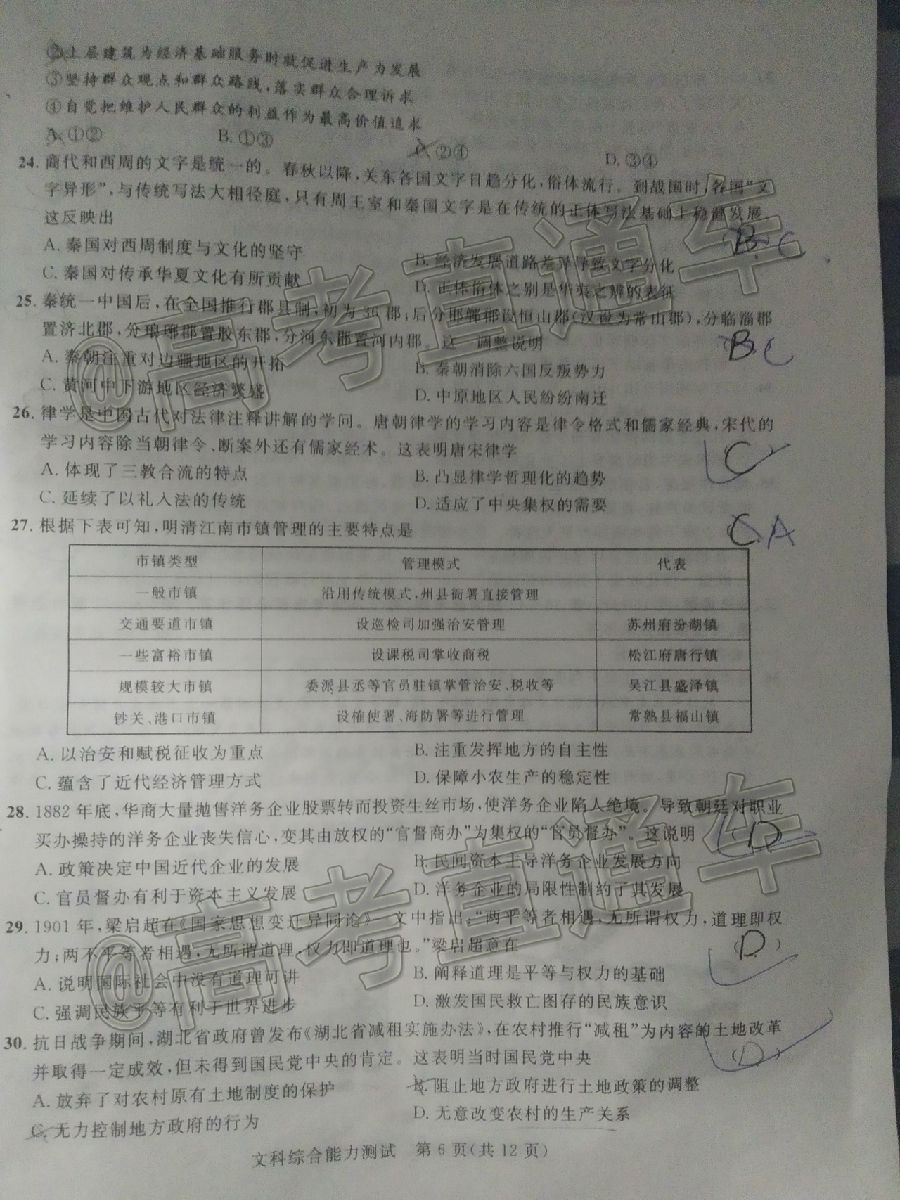 ②上层建筑为经济基础服务时就促进生产力发展
③坚持群众观点和群众路线,落实群众合理诉求
④自觉把维护人民群众的利益作为最高价值追求
A. ①② B. ①③ C. ②④ D. ③④
24. 商代和西周的文字是统一的。春秋以降,关东各国文字日趋分化,俗体流行。到战国时,各国“文
字异形”,与传统写法大相径庭,只有周王室和秦国文字是在传统的正体写法基础上稳健发展。
这反映出
B C
A. 秦国对西周制度与文化的坚守 B. 经济发展道路差异导致文字分化
C. 秦国对传承华夏文化有所贡献 D. 正体俗体之别是华夷之辨的表征
25. 秦统一中国后,在全国推行郡县制,初为36郡;后分邯郸郡设恒山郡(汉设为常山郡),分临淄郡
置济北郡,分琅琊郡置胶东郡,分河东郡置河内郡。这一调整说明
B C
A. 秦朝注重对边疆地区的开拓 B. 秦朝消除六国反叛势力
C. 黄河中下游地区经济繁盛 D. 中原地区人民纷纷南迁
26. 律学是中国古代对法律注释讲解的学问。唐朝律学的学习内容是律令格式和儒家经典,宋代的
学习内容除当朝律令、断案外还有儒家经术。这表明唐宋律学
C
A. 体现了三教合流的特点 B. 凸显律学哲理化的趋势
C. 延续了以礼入法的传统 D. 适应了中央集权的需要
27. 根据下表可知,明清江南市镇管理的主要特点是
C A
市镇类型 管理模式 代表
一般市镇 沿用传统模式,州县衙署直接管理
交通要道市镇 设巡检司加强治安管理 苏州府汾湖镇
一些富裕市镇 设课税司掌收商税 松江府唐行镇
规模较大市镇 委派县丞等官员驻镇掌管治安、税收等 吴江县盛泽镇
钞关、港口市镇 设榷使署、海防署等进行管理 常熟县福山镇
A. 以治安和赋税征收为重点 B. 注重发挥地方的自主性
C. 蕴含了近代经济管理方式 D. 保障小农生产的稳定性
28. 1882年底,华商大量抛售洋务企业股票转而投资生丝市场,使洋务企业陷入绝境。导致朝廷对职业
买办操持的洋务企业丧失信心,变其由放权的“官督商办”为集权的“官员督办”。这说明
D
A. 政策决定中国近代企业的发展 B. 民间资本主导洋务企业发展方向
C. 官员督办有利于资本主义发展 D. 洋务企业的局限性制约了其发展
29. 1901年,梁启超在《国家思想变迁异同论》一文中指出:“两平等者相遇,无所谓权力,道理即权
力;两不平等者相遇,无所谓道理,权力即道理也。”梁启超意在
(D)
A. 说明国际社会中没有道理可讲 B. 阐释道理是平等与权力的基础
C. 强调民族平等有利于世界进步 D. 激发国民救亡图存的民族意识
30. 抗日战争期间,湖北省政府曾发布《湖北省减租实施办法》,在农村推行“减租”为内容的土地改革
并取得一定成效,但未得到国民党中央的肯定。这表明当时国民党中央
(D)
A. 放弃了对农村原有土地制度的保护 B. 阻止地方政府进行土地政策的调整
C. 无力控制地方政府的行为 D. 无意改变农村的生产关系
文科综合能力测试 第6页(共12页)
@高考直通车
@高考直通车